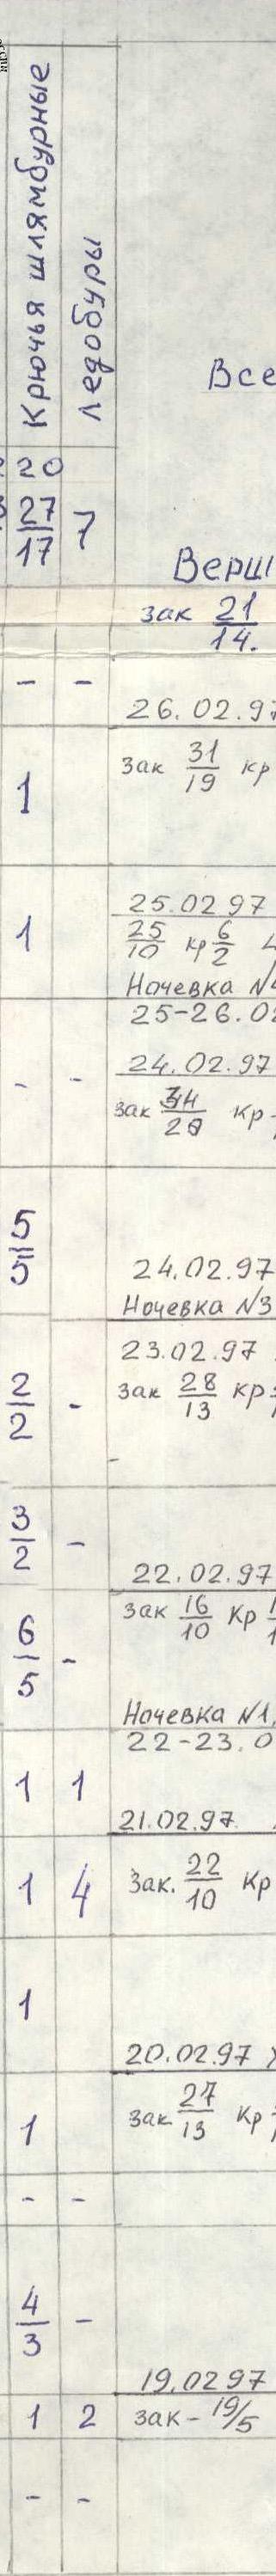 Крючья шлямбурные
Ледобуры
Все
20
27/17 7
Верш
зак 21/14.
- -
26.02.97
зак 31/19 кр
1
25.02 97
1
25/10 кр 6/2
Ночевка №
25-26.0
24.02.97
- -
зак 34/20 кр
5/5
24.02.97
Ночевка №3
23.02.97
2/2 -
зак 28/13 кр
3/2 -
22.02.97
зак 16/10 кр
6/5 -
Ночевка №1,
22-23.0
1 1
21.02.97
1 4
Зак. 22/10 кр
1
20.02.97
1
зак 27/13 кр
- -
4/3 -
19.02 97
1 2 зак - 19/5
- -